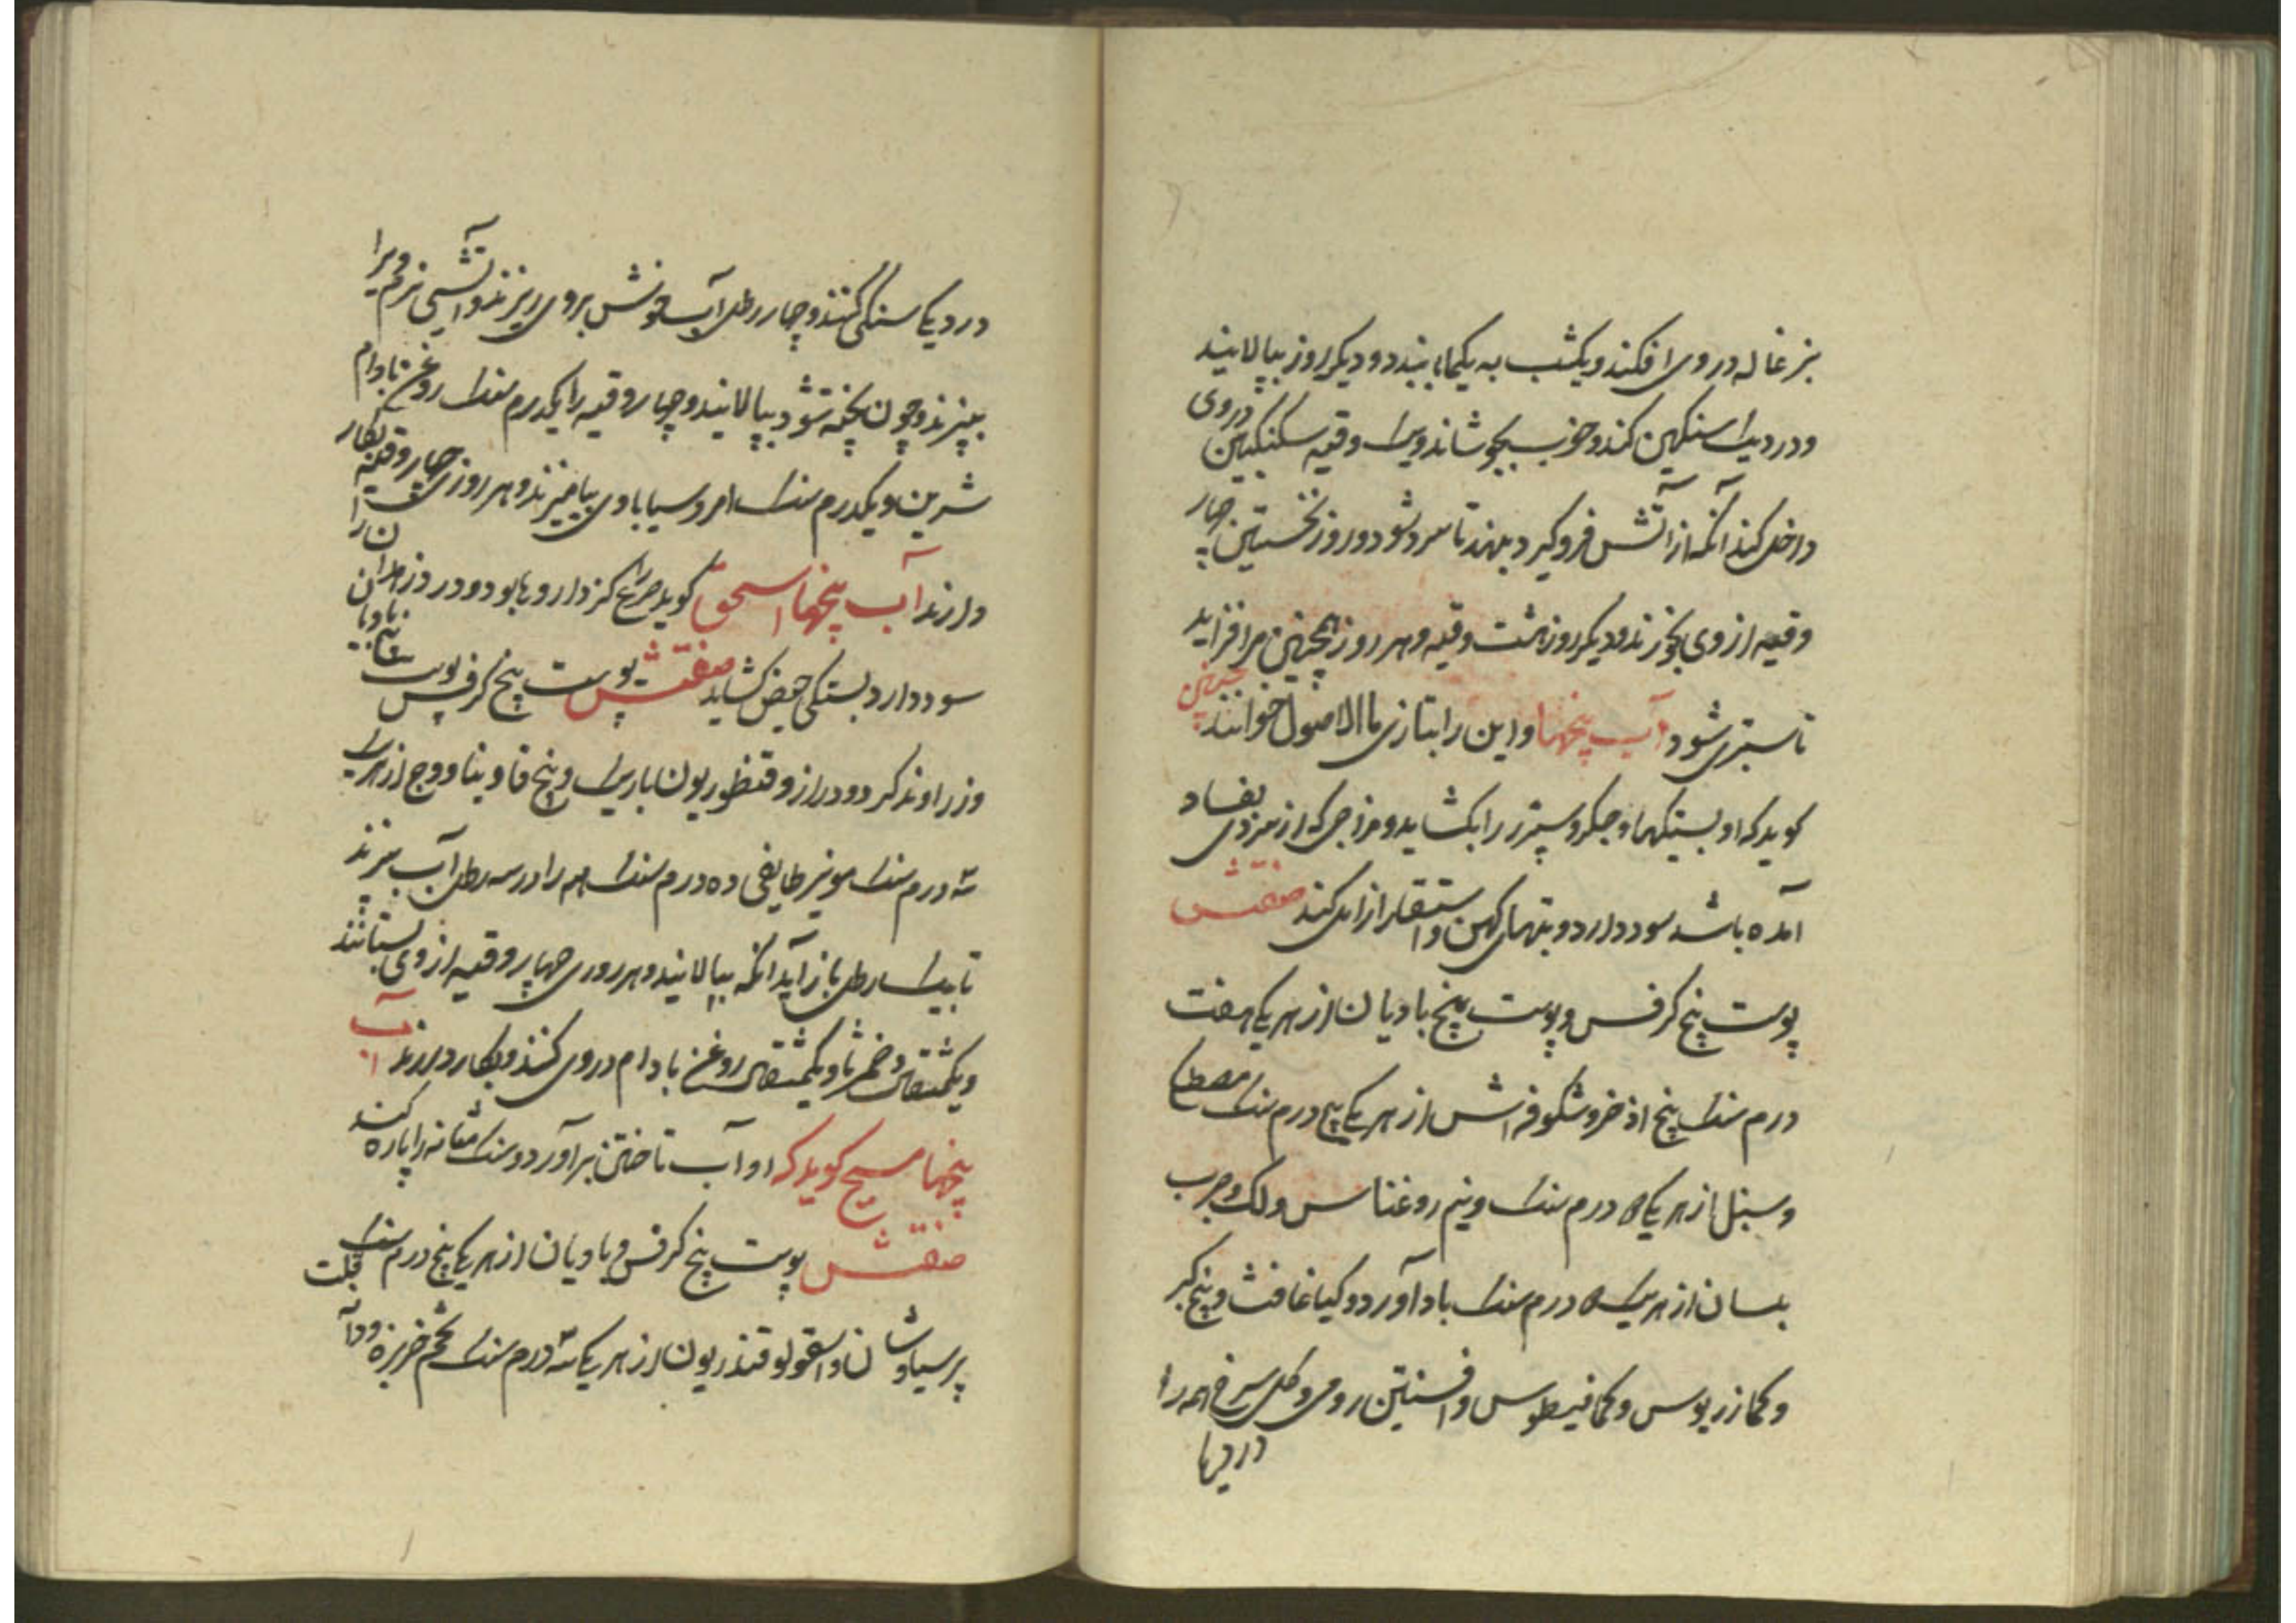 بزغاله در وی افکند و یکشب به یکجا بنهد و دیکر روز بپالایند
و در دیک سنکین کند و خوب بجوشاند و یک وقیه سکنکبین در وی
داخل کند آنکه از آتش فرو کیرد بنهند تا سرد شود و روز نخستین چهار
وقیه از وی بخورند و دیکر روز هشت وقیه و هر روز همچنین می افزاید
تا سبری شود آب بیخها و این را بتازی ماالاصول خوانند حبیش
کوید که او بستیکهاء جکر و سپرز را بکشاید و مزاجی که از سردی بفساد
آمده باشد سود دارد و تبهای کهن و استسقا را زایل کند صفتش
پوست بیخ کرفس و پوست بیخ بادیان از هر یکی هفت
درم سنک بیخ اذخر و شکوفه اش از هر یکی پنج درم سنک مصطکی
و سنبل از هر یکی درم سنک و نیم روغناس و لک و حب
بلسان از هر یک درم سنک باداورد و کیا غافث و بیخ کبر
و کمازریوس و کمافیطوس و افسنتین رومی و کل سرخ همه را
در دیک
در دیک سنکی کنند و چهار رطل آب خوش بر وی ریزند و آتش نرم ویرا
بپزند و چون پخته شود بپالایند و چهار وقیه را یکدرم سنک روغن بادام
شرین و یکدرم سنک امروسیا با وی بیامیزند و هر روزی چهار وقیه بکار
دارند آب بیخها اسحق کوید صرع کز داروها بود و درد زهدان را
سود دارد و بستکی حیض کشاید صفتش پوست بیخ کرفس پوست بیخ بادیان
و زراوند کرد و دراز و قنطوریون باریک و بیخ فاوینا و وج از هر یک
سه درم سنک مویز طایفی ده درم سنک همه را در سه رطل آب بپزند
تا بیک رطل باز آید آنکه بپالایند و هر روزی چهار وقیه از وی بستانند
و یکمثقال دخمرثا و یکمثقال روغن بادام در وی کنند و بکار دارند آب
بیخها مسیح کوید که او آب تاختن برآورد و سنک مثانه را پاره کند
صفتش پوست بیخ کرفس و بادیان از هر یکی پنج درم سنک قلت
پرسیاوشان و اسقولوقندریون از هر یک سه درم سنک تخم خربزه و دآ